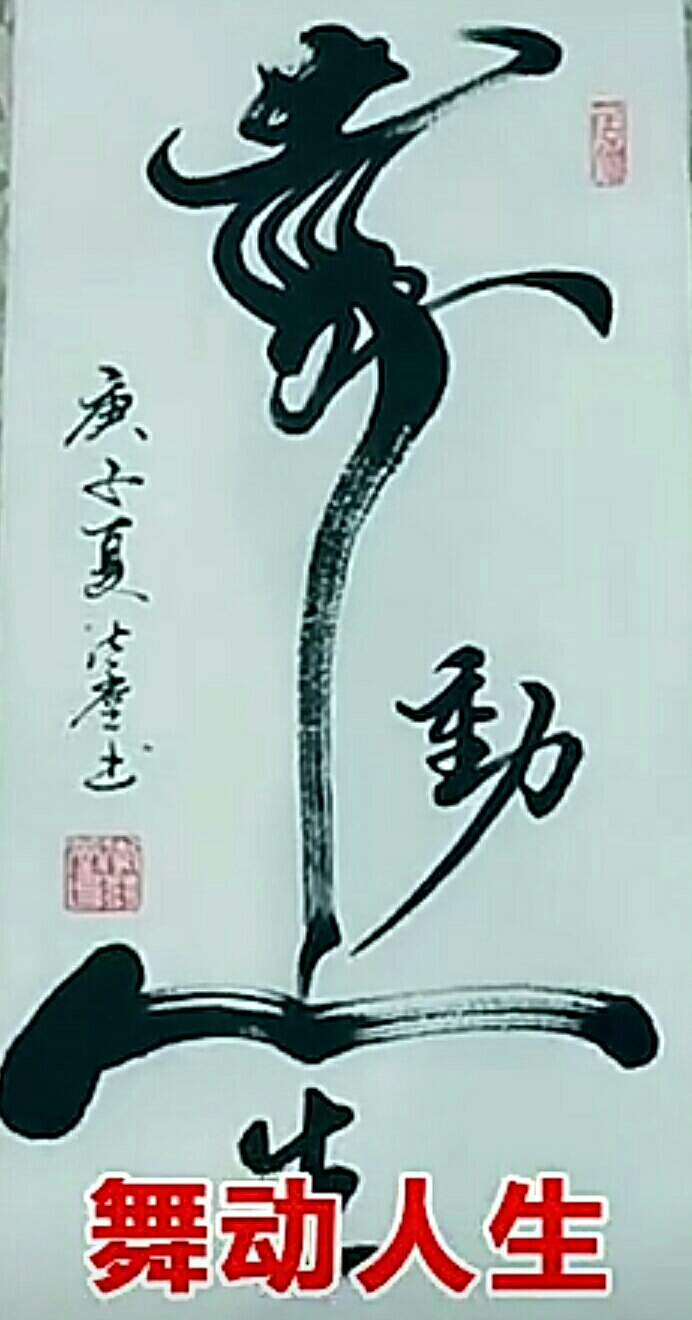 舞
動
人
生
庚子夏
书
舞动人生